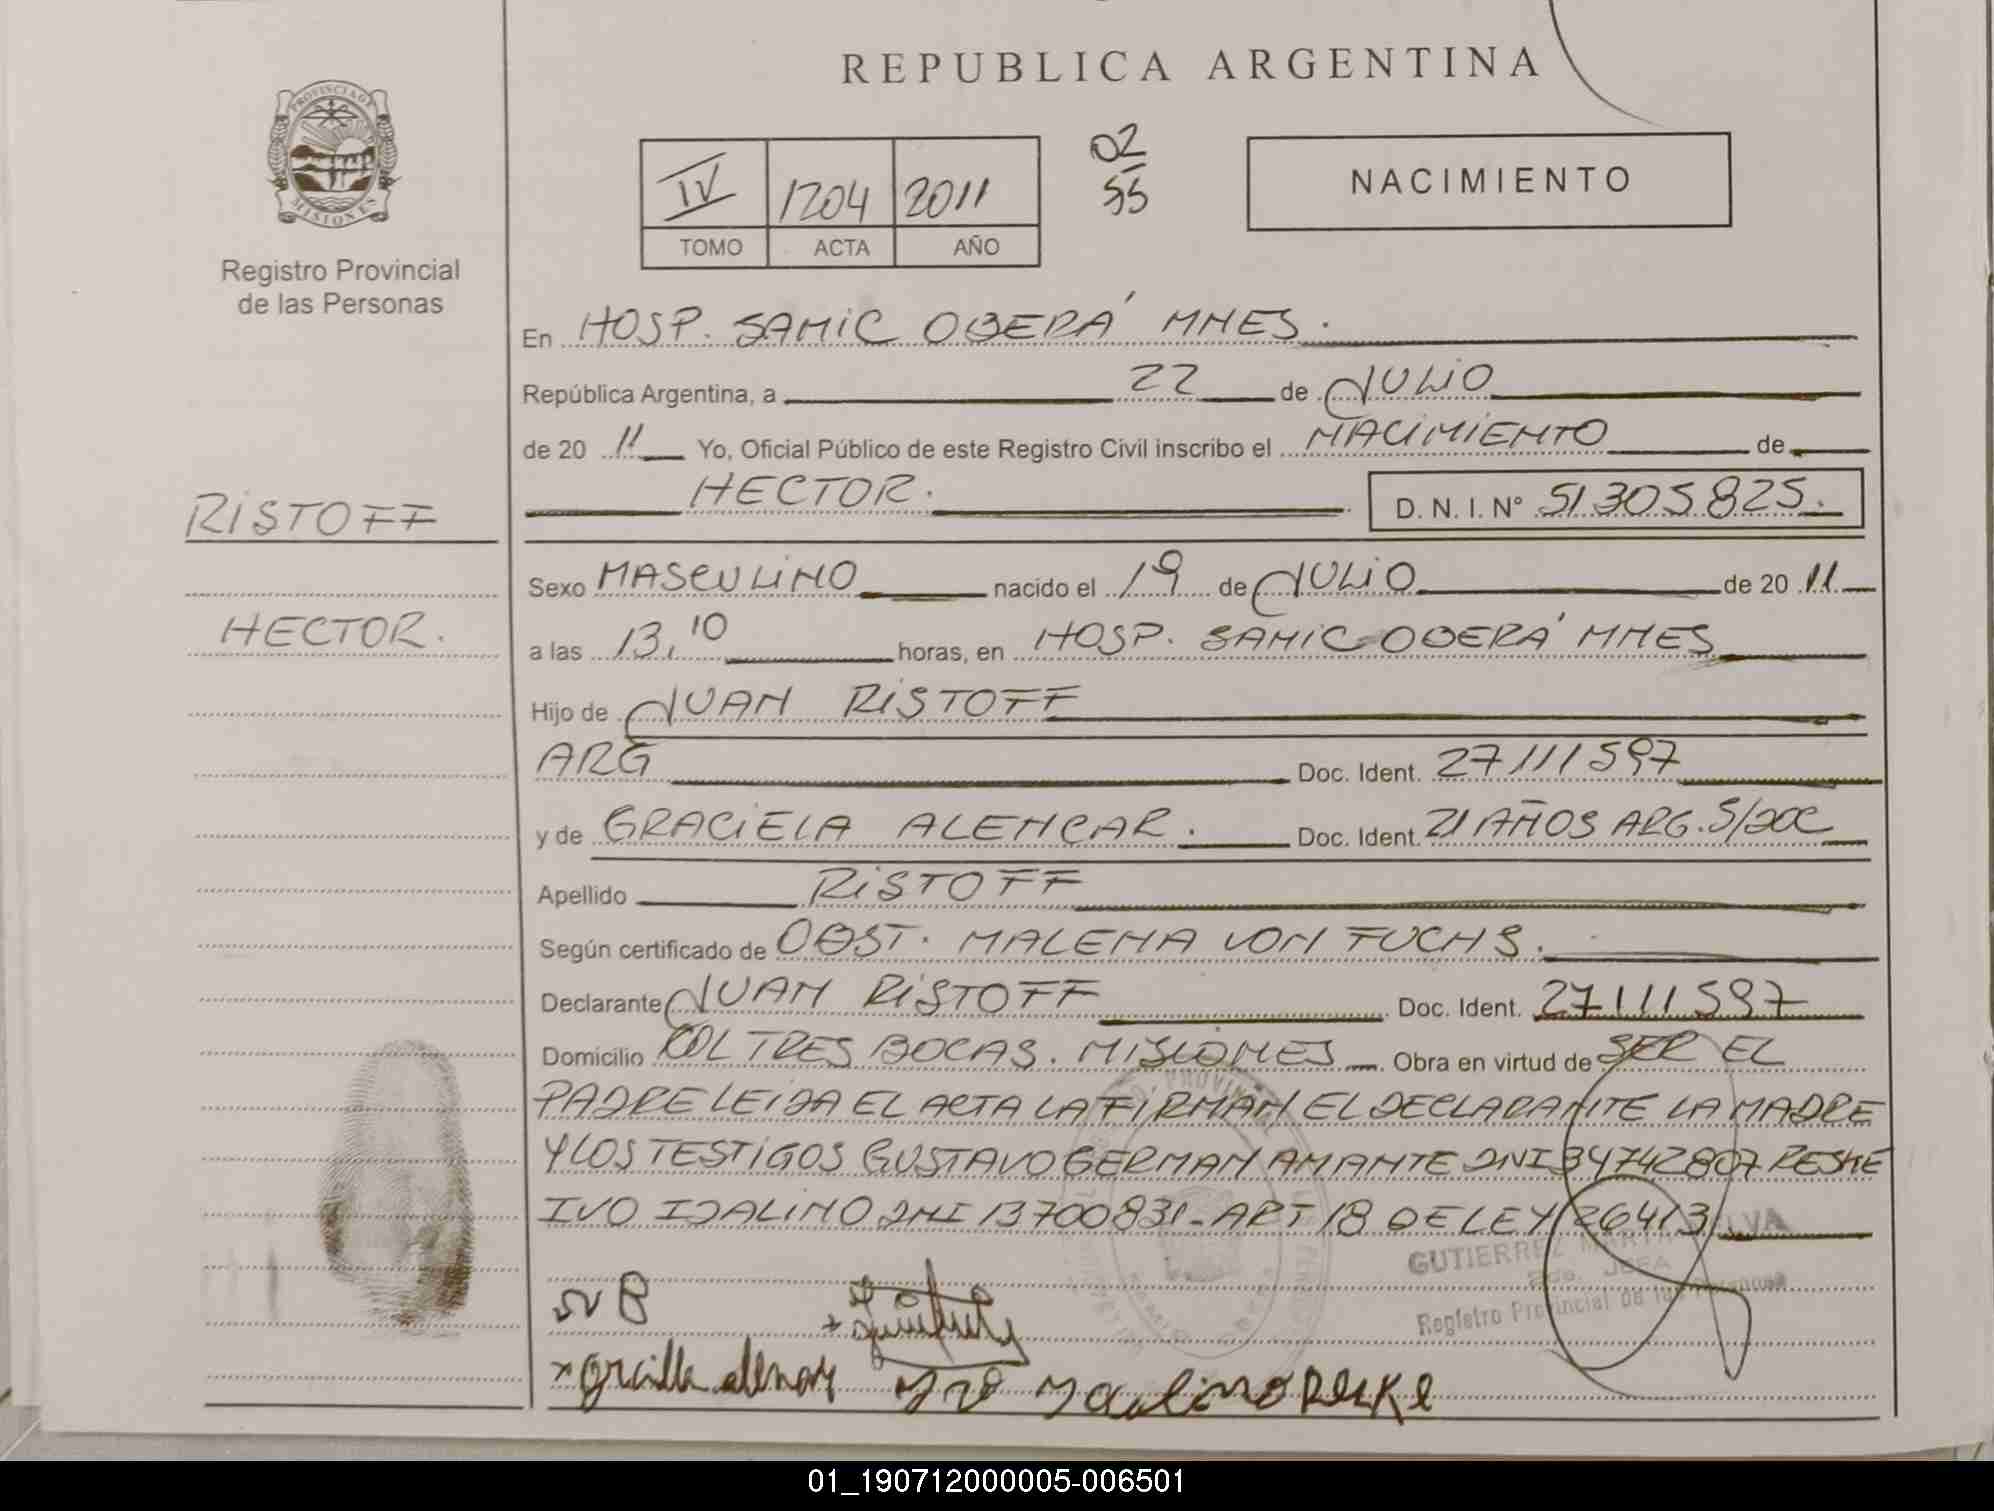 REPUBLICA ARGENTINA
PROVINCIA DE
MISIONES
Registro Provincial
de las Personas
IV 1204 2011
TOMO ACTA AÑO
02
55
NACIMIENTO
En HOSP. SAMIC OBERÁ MNES.
República Argentina, a 22 de JULIO
de 20 11 Yo, Oficial Público de este Registro Civil inscribo el NACIMIENTO de
HECTOR. D. N. I. Nº 51305825.
RISTOFF
HECTOR.
Sexo MASCULINO nacido el 19 de JULIO de 20 11
a las 13,10 horas, en HOSP. SAMIC OBERÁ MNES
Hijo de JUAN RISTOFF
ARG Doc. Ident. 27111597
y de GRACIELA ALENCAR. Doc. Ident. 21 AÑOS ARG. S/DOC
Apellido RISTOFF
Según certificado de OBST. MALENA VON FUCHS.
Declarante JUAN RISTOFF Doc. Ident. 27111597
Domicilio COL TRES BOCAS. MISIONES. Obra en virtud de SER EL
PADRE LEIDA EL ACTA LA FIRMAN EL DECLARANTE LA MADRE
Y LOS TESTIGOS GUSTAVO GERMAN AMANTE DNI 34742807 RESKE
IVO IDALINO DNI 13700831-ART 18 DE LEY 26413
GUTIERREZ MARTA
JEFA
Registro Provincial de las Personas
01_190712000005-006501